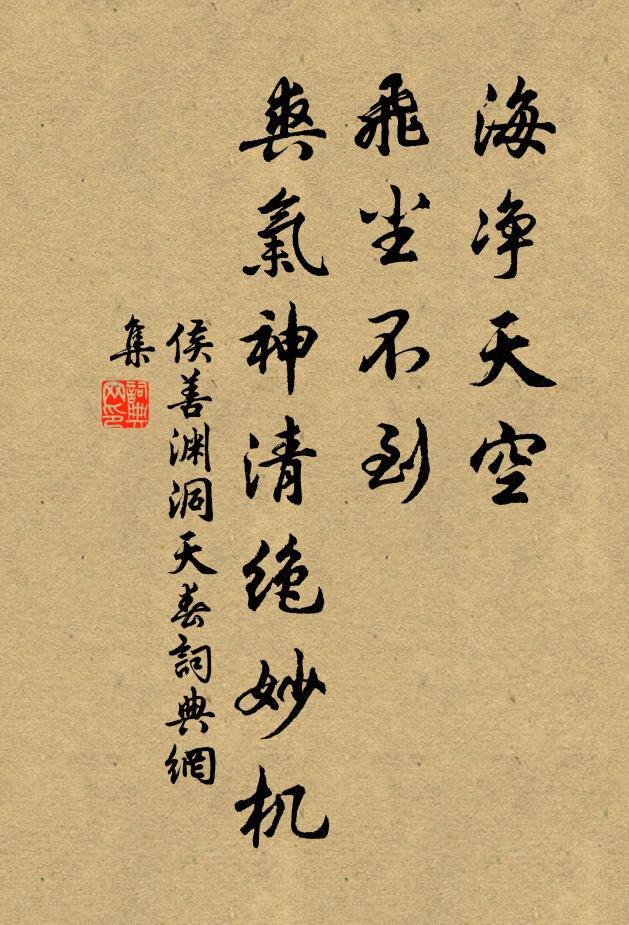 海净天空
飛尘不到
爽氣神清绝妙机
侯善渊洞天春詞典網
集
詞典
网印